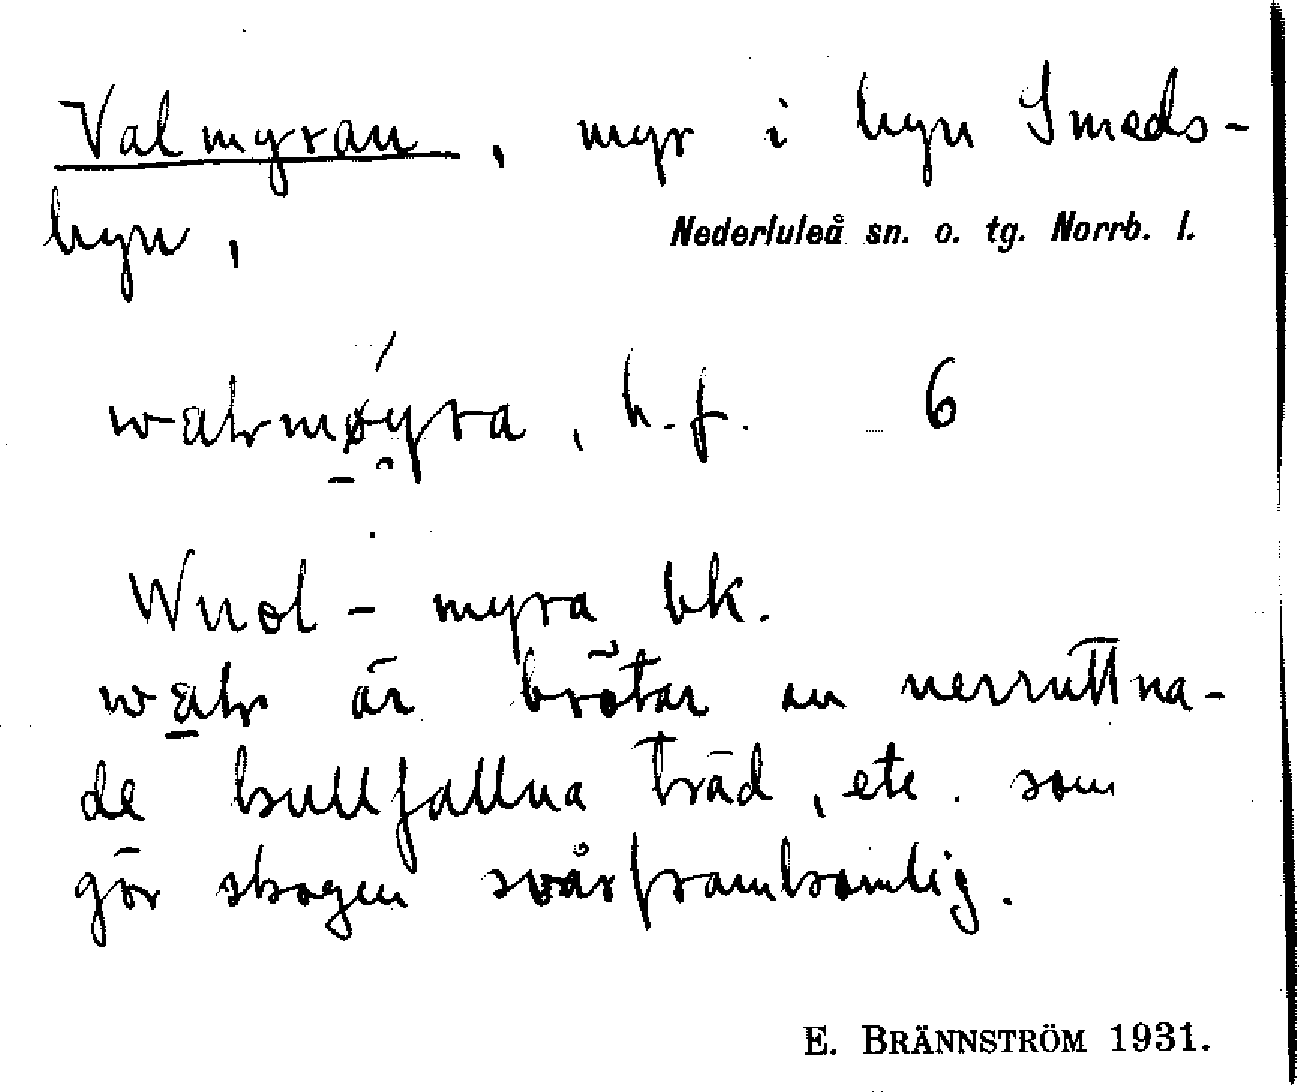 Valmyran, myr i byn Smeds-
byn, Nederluleå sn. o. tg. Norrb. l.
b.f. 6
myra bk.
är brötar nerruttna-
de kullfallna träd, etc. som
gör skogen svårframkomlig.
E. BRÄNNSTRÖM 1931.